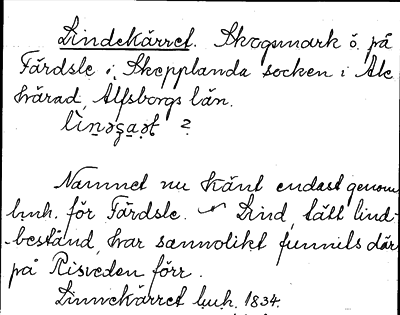 Lindekärret. Skogsmark ö. på
Färdsle i Skepplanda socken i Ale
härad, Älfsborgs län.
?
Namnet nu känt endast genom
h.m.h. för Färdsle. Lind, tätt lind-
-bestånd, har sannolikt funnits där
på Risveden förr.
Linnekärret h.m.h. 1834.